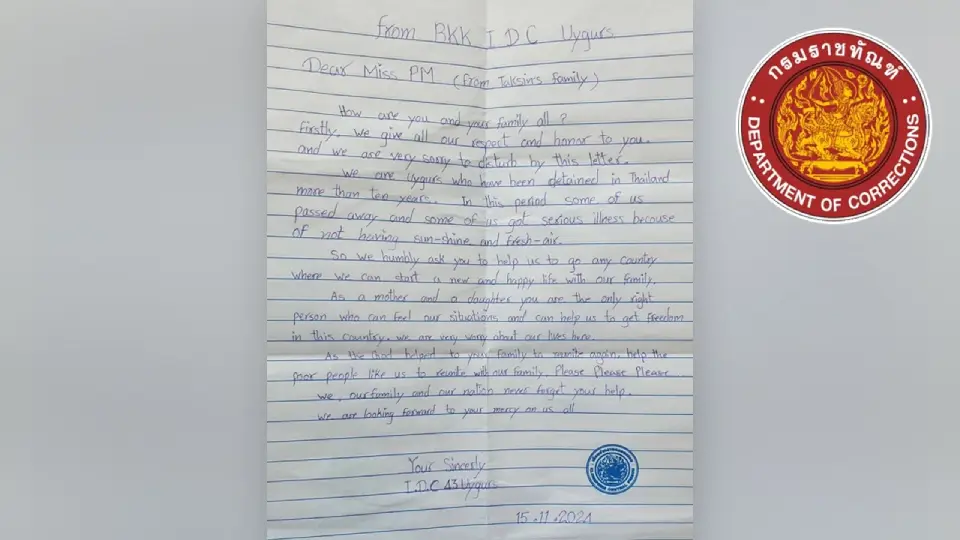 from BKK I D C Uygurs
Dear Miss PM (from Taksin's Family)
How are you and your family all?
Firstly, we give all our respect and honor to you.
and we are very sorry to deturb by this letter.
We are Uygurs who have been detained in Thailand
more than ten years. In this period some of us
passed away and some of us got serious illness because
of not having sun-shine and fresh-air.
So we humbly ask you to help us to go any country
where we can start a new and happy life with our family.
As a mother and a daughter you are the only right
person who can feel our situations and can help us to get freedom
in this country. we are very worry about our lives here.
As the God helped to your family to reunite again. help the
poor people like us to reunite with our family. Please Please Please
we, our family and our nation never forget your help.
We are looking forward to your mercy on us all
Your Sincerly
I.D.C 43 Uygurs
15.11.2024
กรมราชทัณฑ์
DEPARTMENT OF CORRECTIONS